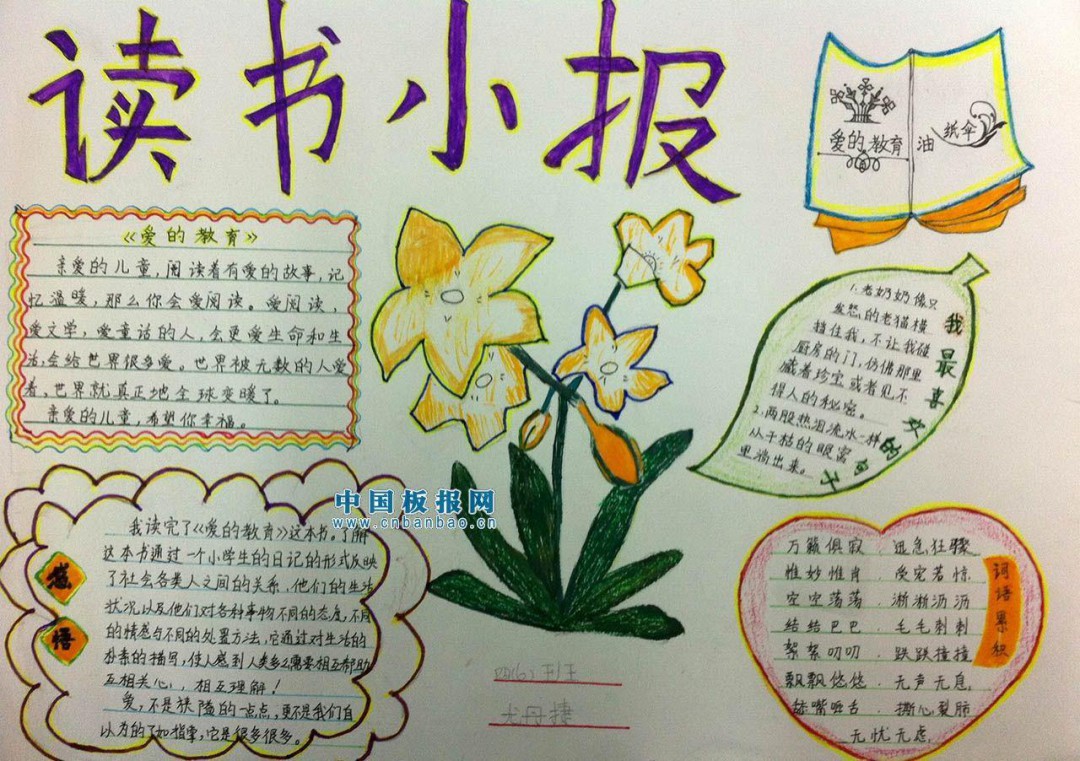 读书小报
爱的教育 油纸伞
《爱的教育》
亲爱的儿童,阅读着有爱的故事,记
忆温暖,那么你会爱阅读。爱阅读,
爱文学,爱童话的人,会更爱生命和生
活,会给世界很多爱。世界被无数的人爱
着,世界就真正地全球变暖了。
亲爱的儿童,希望你幸福。
我最喜欢的句子
1.老奶奶像只
发怒的老猫横
挡住我,不让我碰
厨房的门,仿佛那里
藏着珍宝或者见不
得人的秘密。
2.两股热泪流水一样
从干枯的眼窝
里淌出来。
中国板报网
www.cnbanbao.cn
感悟
我读完了《爱的教育》这本书。了解
这本书通过一个小学生的日记的形式反映
了社会各类人之间的关系,他们的生活
状况以及他们对各种事物不同的态度,不同
的情感与不同的处置方法,它通过对生活的
朴素的描写,使人感到人类多么需要相互帮助
互相关心,相互理解!
爱,不是狭隘的一点点,更不是我们自
以为的了如指掌,它是很多很多。
词语累积
万籁俱寂 迅急狂骤
惟妙惟肖 . 受宠若惊
空空荡荡 . 淅淅沥沥
结结巴巴 . 毛毛刺刺
絮絮叨叨 . 跌跌撞撞
飘飘悠悠 . 无声无息
咂嘴咂舌 . 撕心裂肺
无忧无虑
四(6)班